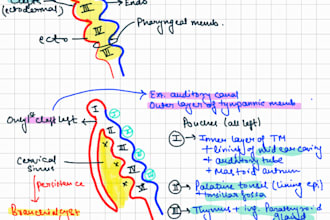 Cleft
(ectodermal)
Endo
Pharyngeal memb.
ecto
II
III
III
Ex. auditory canal
Outer layer of tympanic memb
Only 1st cleft left
Pouches (all left)
I → Inner layer of TM
+ lining of mid ear cavity
+ auditory tube
+ Mastoid antrum
Cervical
sinus
II → Palatine tonsil (lining epi)
tonsilar fossa
persistence
Branchial cyst
III → Thymus + inf. Parathyroid
gland
I
II
III
x
x
x